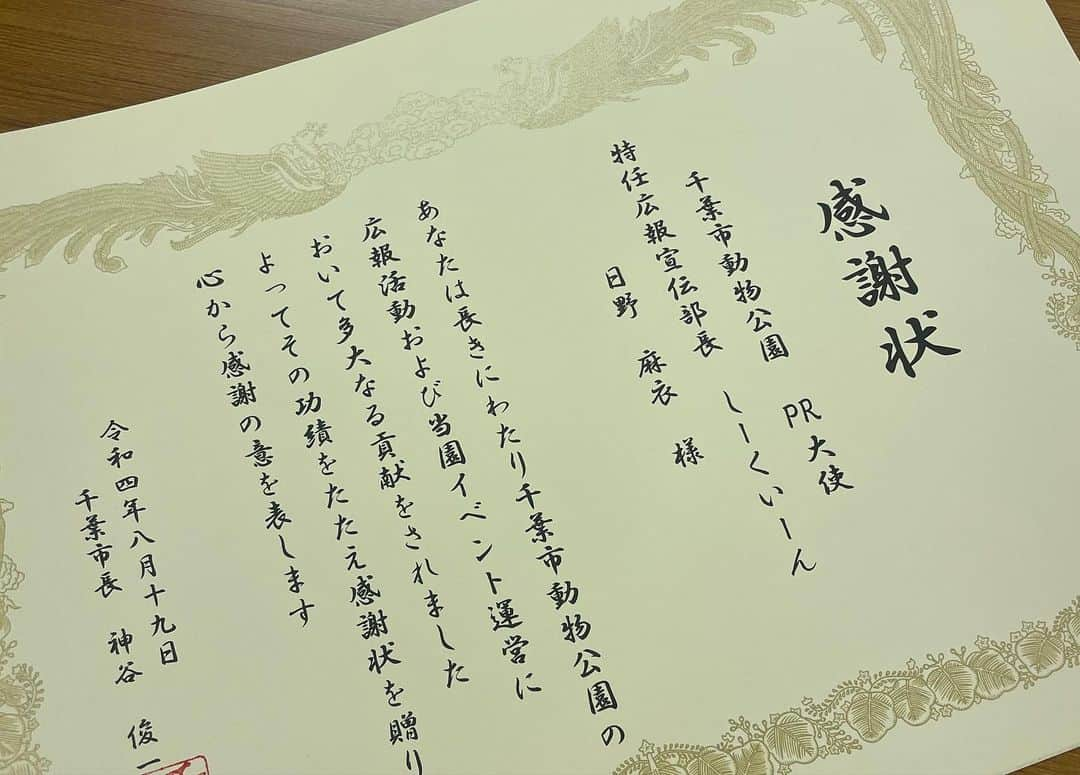 感謝状
千葉市動物公園　PR大使
特任広報宣伝部長　しーくいーん
日野　麻衣　様
あなたは長きにわたり千葉市動物公園の
広報活動および当園イベント運営に
おいて多大なる貢献をされました
よってその功績をたたえ感謝状を贈り
心から感謝の意を表します
令和四年八月十九日
千葉市長　神谷　俊一